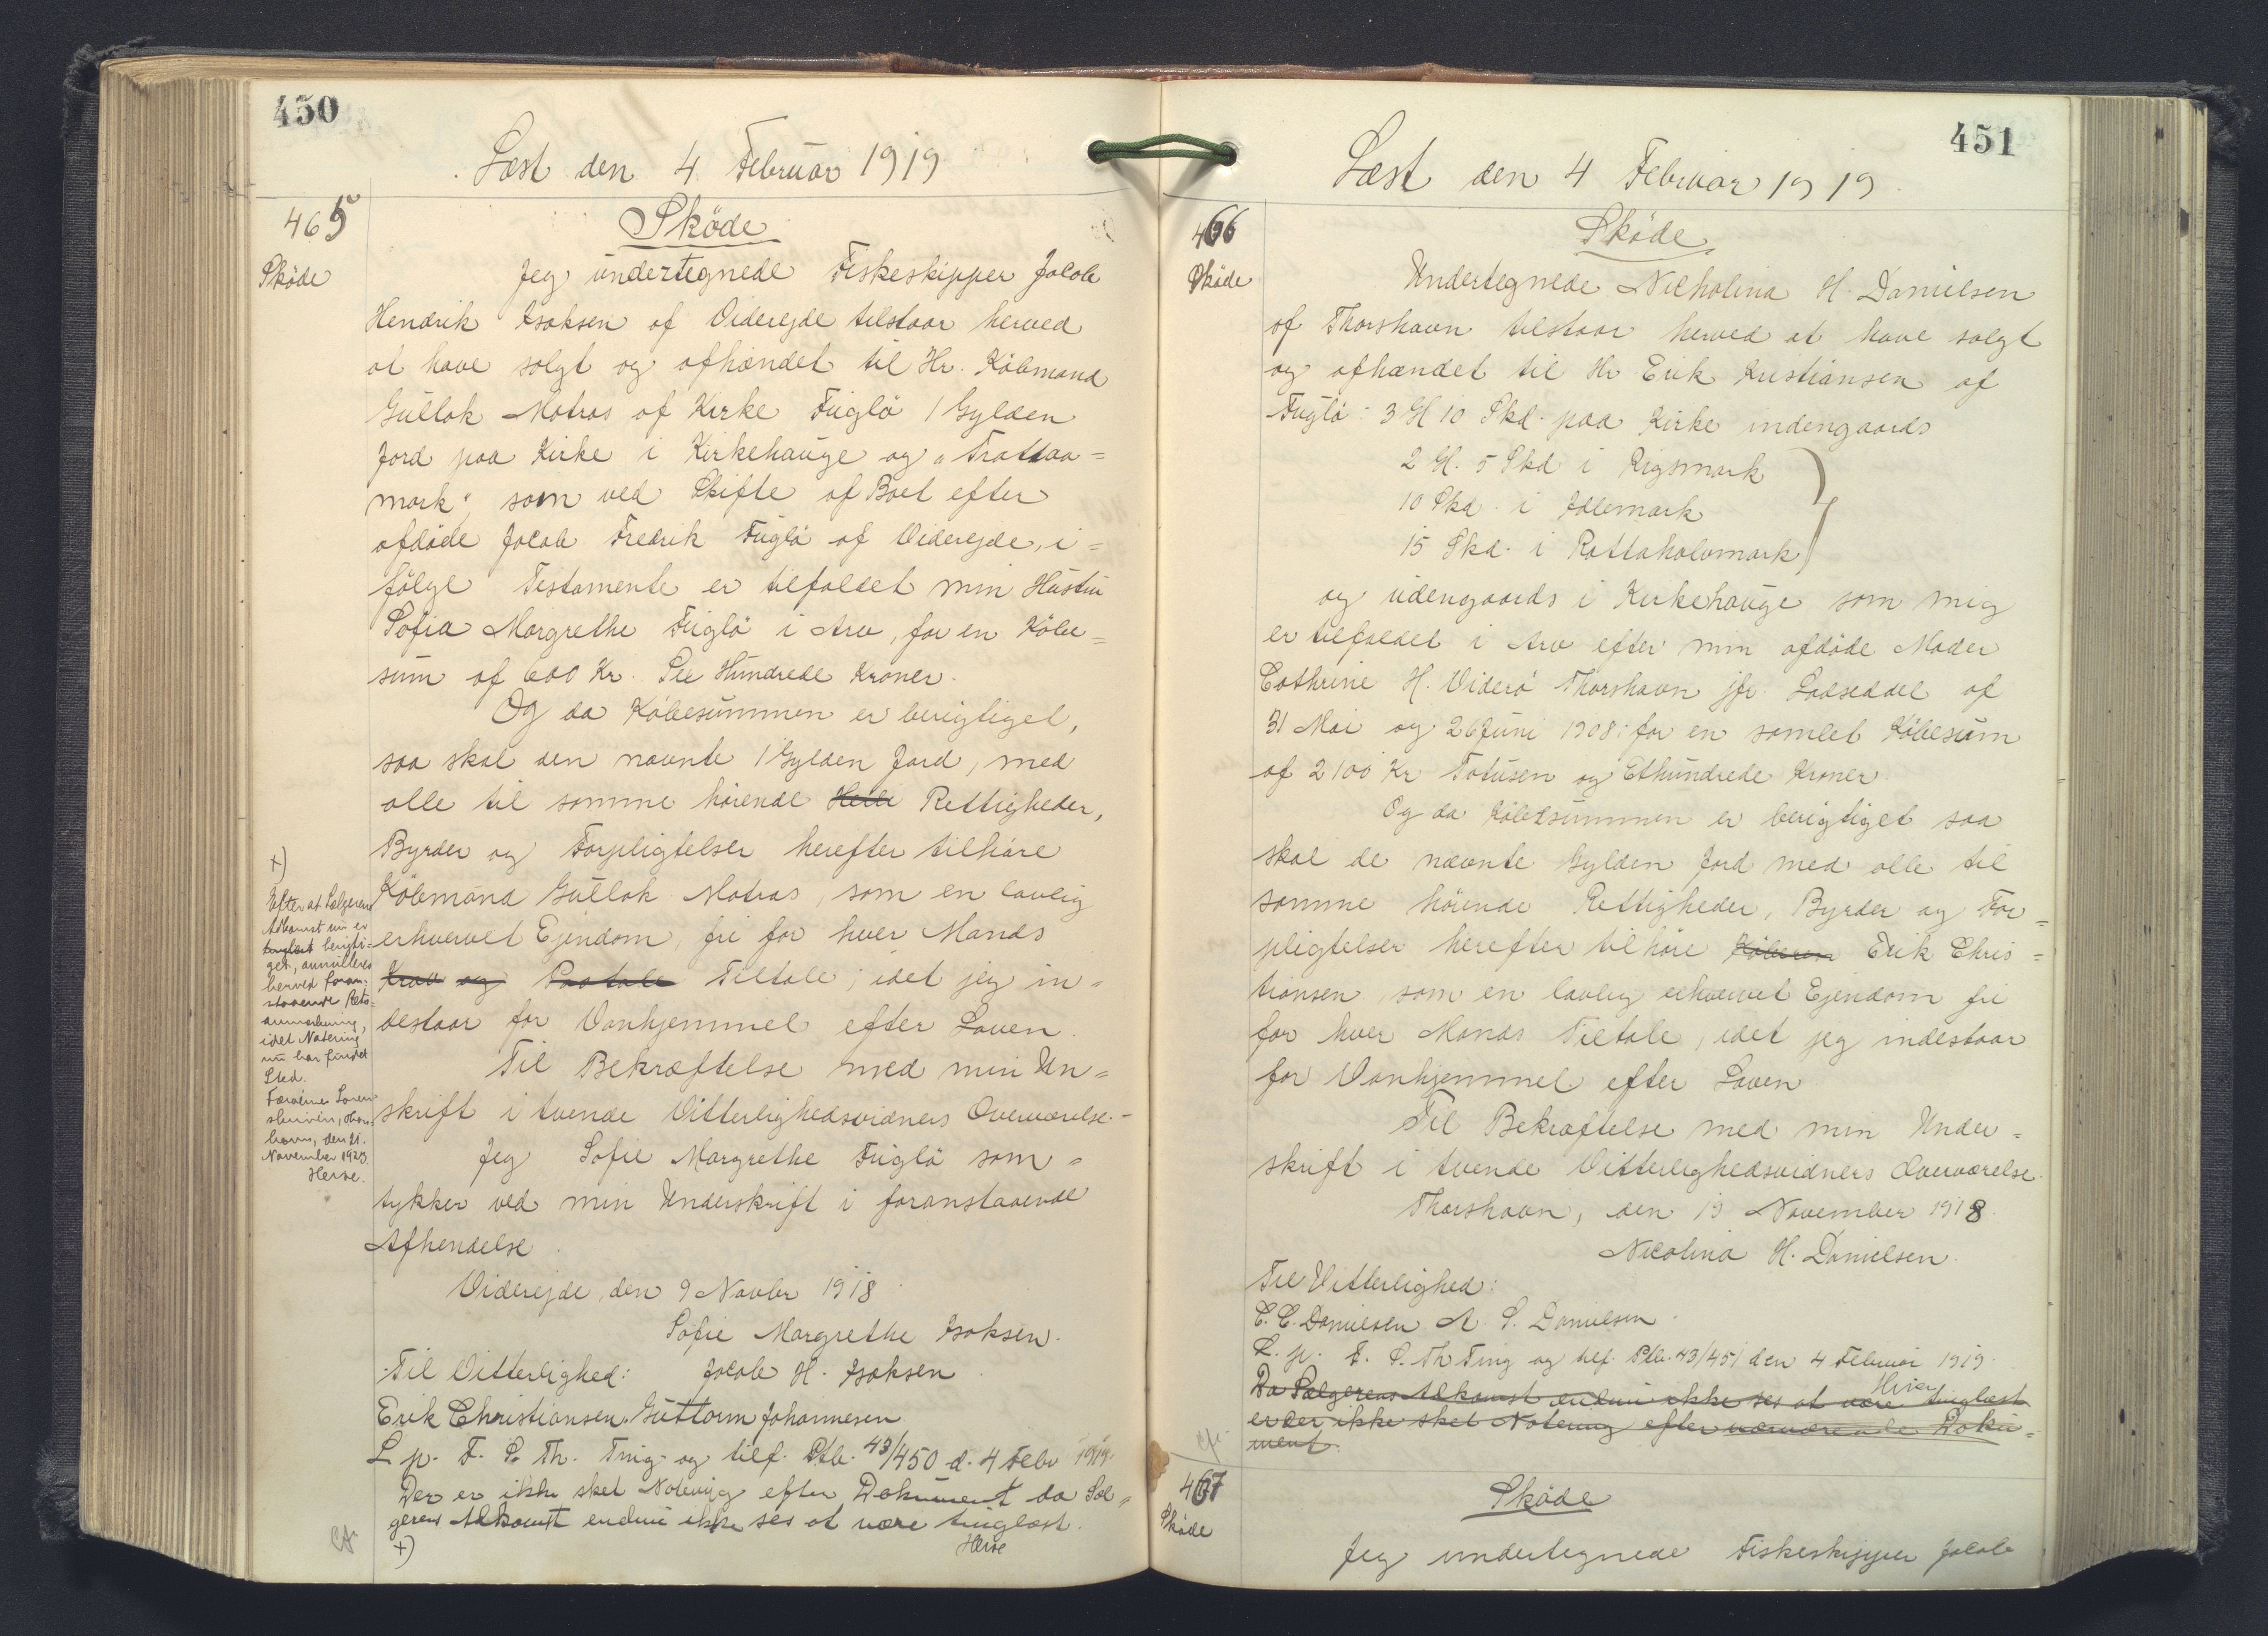 450
Læst den 4 Februar 1919
465
Sköde
Sköde
Jeg undertegnede Fiskeskipper Jacob
Hendrik Isaksen af Viderejde tilstaar herved
at have solgt og afhændet til Hr. Köbmand
Gullak Matras af Kirke Fuglö 1 Gylden
Jord paa Kirke i Kirkehauge og "Trattaa=
mark", som ved Skifte af Boet efter
afdöde Jacob Fredrik Fuglö af Viderejde, i=
fölge Testamente er tilfaldet min Hustru
Sofia Margrethe Fuglö i Arv, for en Köbe=
sum af 600 Kr. Sex Hundrede Kroner.
Og da Köbesummen er berigtiget,
saa skal den nævnte 1 Gylden Jord, med
alle til samme hörende Rettigheder,
Byrder og Forpligtelser herefter tilhöre
Köbmand Gullak Matras, som en lovlig
erhvervet Ejendom, fri for hver Mands
Krav og Paatale Tiltale; idet jeg in=
destaar for Vanhjemmel efter Loven.
Til Bekræftelse med min Un=
skrift i tvende Vitterlighedsvidners Overværelse.-
Jeg Sofie Margrethe Fuglö sam=
tykker ved min Underskrift i foranstaaende
Afhendelse.
Viderejde, den 9 Novbr 1918.
Sofie Margrethe Isaksen.
Til Vitterlighed: Jacob H. Isaksen.
Erik Christiansen. Guttorm Johannesen
L. p. F. S. Th. Ting og tilf. Ptb. 43/450 d. 4 Febr 1919.
Der er ikke sket Notering efter Dokument da Sæl=
gerens Adkomst endnu ikke ses at være tinglæst.
+)
Herse
Cfr
+)
Efter at Sælgerens
Adkomst nu er
tinglæst berigti=
get, annulleres
herved foran=
staaende Rets=
anmærkning,
idet Notering
nu har fundet
Sted.
Færøernes Soren=
skriveri, Thors=
havn, den 21.
November 1923.
Herse.
451
Læst den 4 Februar 1919.
466
Sköde
Sköde
Undertegnede Nicholina H. Danielsen
af Thorshavn tilstaar herved at have solgt
og afhændet til Hr Erik Kristiansen af
Fuglö: 3 Gl 10 Skd. paa Kirke indengaards
2 Gl. 5 Skd i Rigsmark
10 Skd. i Idlemark
15 Skd. i Rattaholvmark
og udengaards i Kirkehauge som mig
er tilfaldet i Arv efter min afdöde Moder
Cathrine H. Viderö Thorshavn jfr. Lodseddel af
31 Mai og 26 Juni 1908: for en samlet Köbesum
af 2100 Kr Totusen og Ethundrede Kroner.
Og da Köbesummen er berigtiget saa
skal de nævnte Gylden Jord med alle til
samme hörende Rettigheder, Byrder og For=
pligtelser herefter tilhöre Köberen Erik Chris=
tiansen, som en lovlig erhvervet Ejendom fri
for hver Mands Tiltale, idet jeg indestaar
for Vanhjemmel efter Loven
Til Bekræftelse med min Under=
skrift i tvende Vitterlighedsvidners Overværelse.
Thorshavn, den 19 November 1918.
Nicolina H. Danielsen.
Til Vitterlighed:
C. C. Danielsen A. S. Danielsen.
L. p. F. S. Th Ting og tilf. Ptb. 43/451 den 4 Februar 1919.
Da Sælgerens Adkomst endnu ikke ses at være tinglæst
er der ikke sket Notering efter nærværende Doku=
ment.
Cfr.
467
Sköde
Sköde
Jeg undertegnede Fiskeskipper Jacob